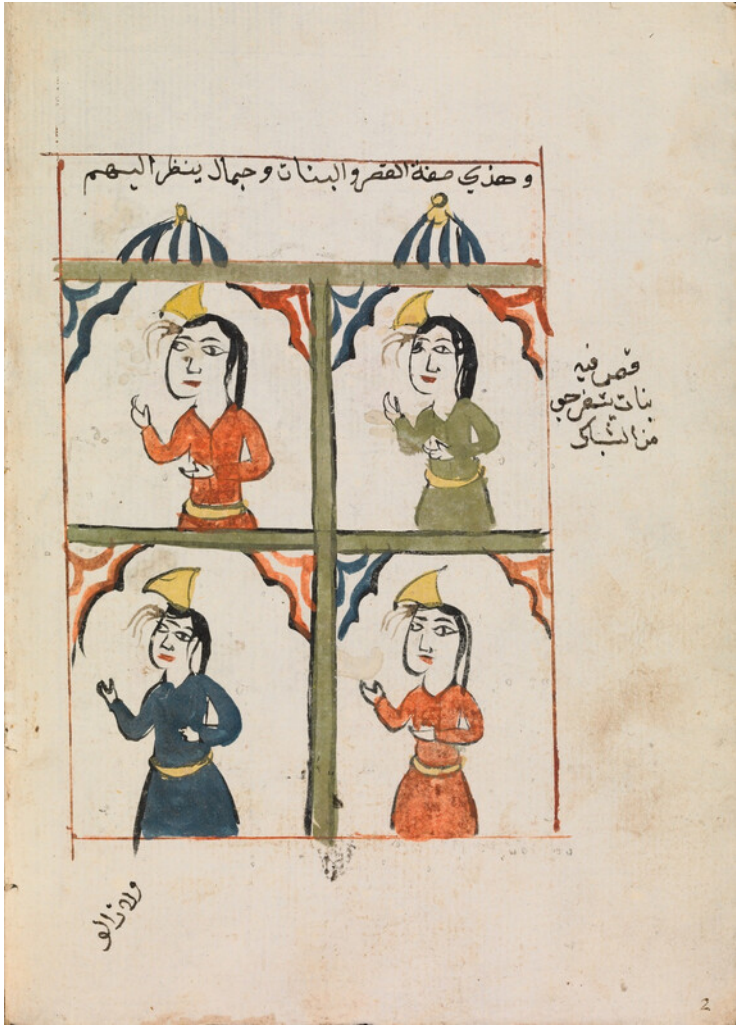 وهذي صفة القصر والبنات وجمال ينظر اليهم
قصر فيه
بنات يتفرجو
من الشباك
ولا زالو
2